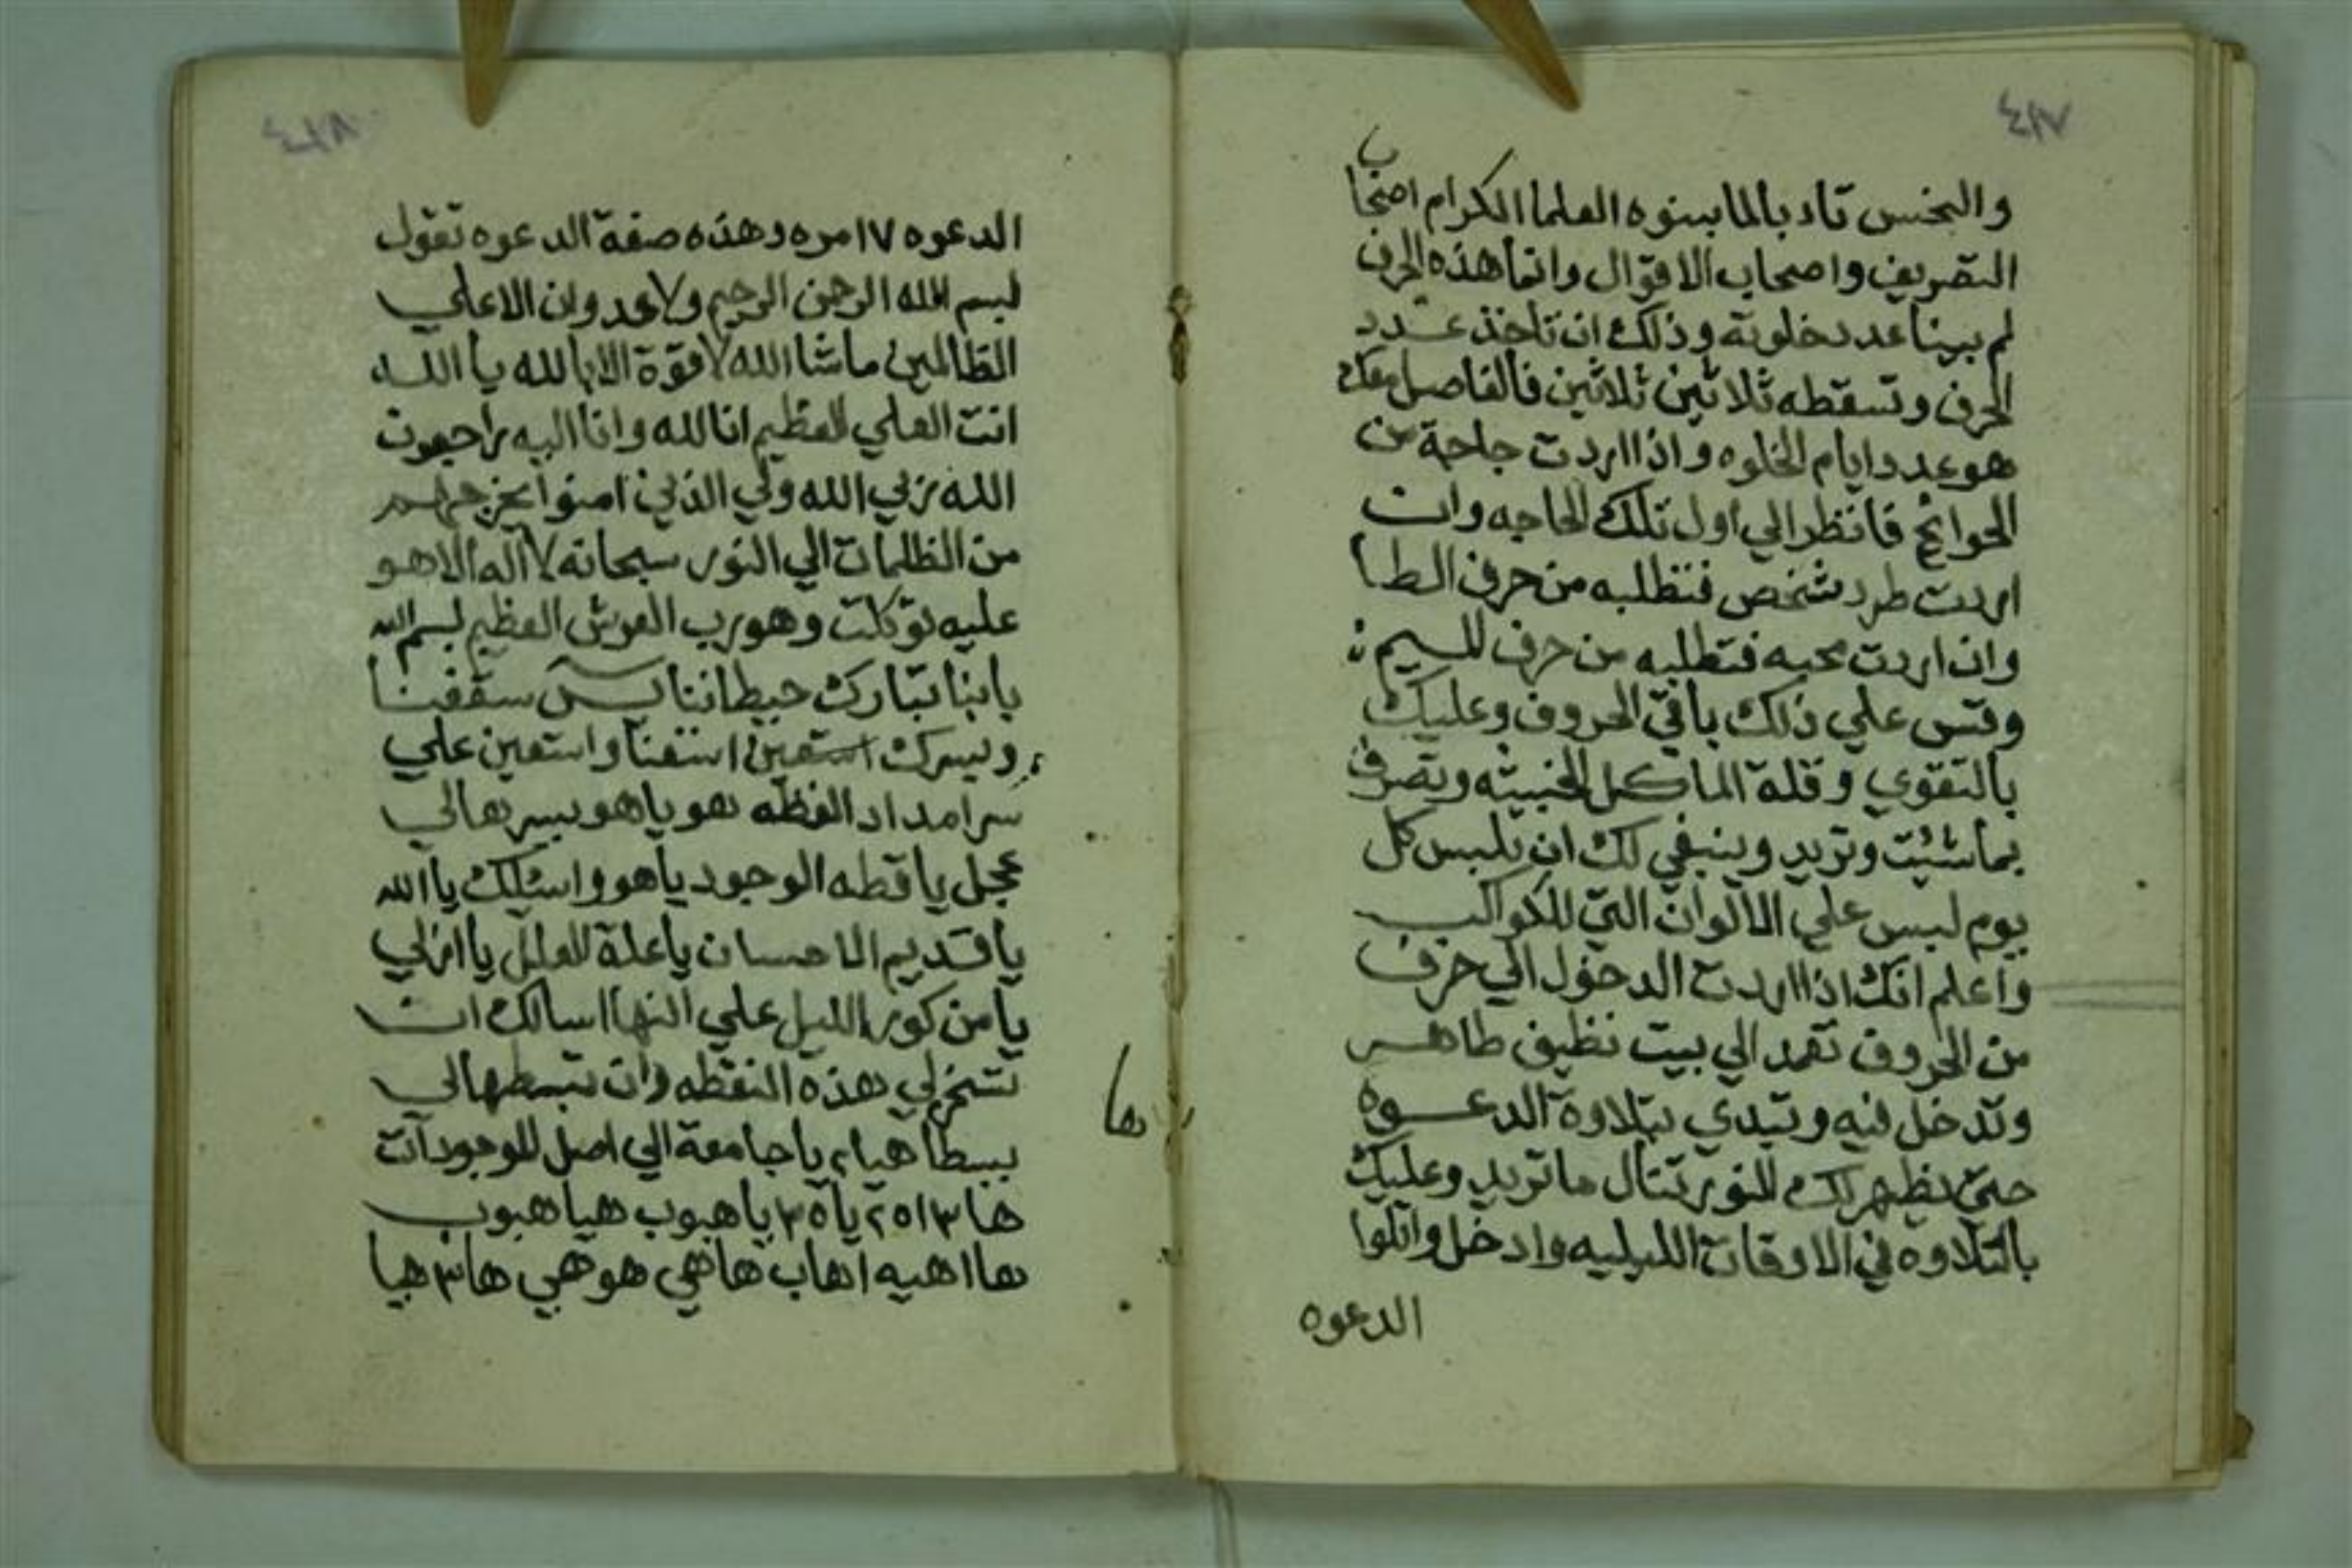 ٤١٧
والبخس تادبالمابينوه العلما الكرام اصحاب
التصريف واصحاب الاقوال وانما هذه الحرف
لم بيناعدد خلوته وذلك ان تاخذ عدد
الحرف وتسقطه ثلاثين ثلاثين فالفاصل معك
هو عدد ايام الخلوه واذا اردت حاجة من
الحوائج فانظر الي اول تلك الحاجه وان
اردت طرد شخص فتطلبه من حرف الطا
وان اردت محبه فتطلبه من حرف الميم
وقس علي ذلك باقي الحروف وعليك
بالتقوي وقلة الماكل الخبيثه وتصرف
بماشئت وتريد وينبغي لك ان تلبس كل
يوم لبس علي الالوان التي للكواكب
واعلم انك اذا اردت الدخول الي حرف
من الحروف تعمد الي بيت نظيف طاهر
وتدخل فيه وتبدي بتلاوة الدعوه
حتي يظهر لك النور تنال ما تريد وعليك
بالتلاوه في الاوقات الليليه وادخل واتلوا
الدعوه
٤١٨
الدعوه ١٧ مره وهذه صفة الدعوه تقول
بسم الله الرحمن الرحيم ولا عدوان الا علي
الظالمين ماشا الله لا قوة الا بالله يا الله
انت العلي العظيم انا لله وانا اليه راجعون
الله ربي الله ولي الذين امنوا يخرجهم
من الظلمات الي النور سبحانه لا اله الا هو
عليه توكلت وهو رب العرش العظيم بسم الله
بابنا تبارك حيطاننا يس سقفنا
وبسرك استعين استغنا واستعين علي
سر امداد النقطه هو يا هو يسرها لي
عجل يا قطه الوجود يا هو واسئلك يا الله
يا قديم الاحسان يا علة العلل يا ازلي
يا من كور الليل علي النها اسالك ان
تسخر لي هذه النقطه وان تبسطها لي
بسطا هيا يا جامعة الي اصل الموجودات
ها
ها ٣ ا ه ٢ يا ه ٣ يا هبوب هيا هبوب
ها اهيه اهاب هاهي هو هي ها ٣ هيا